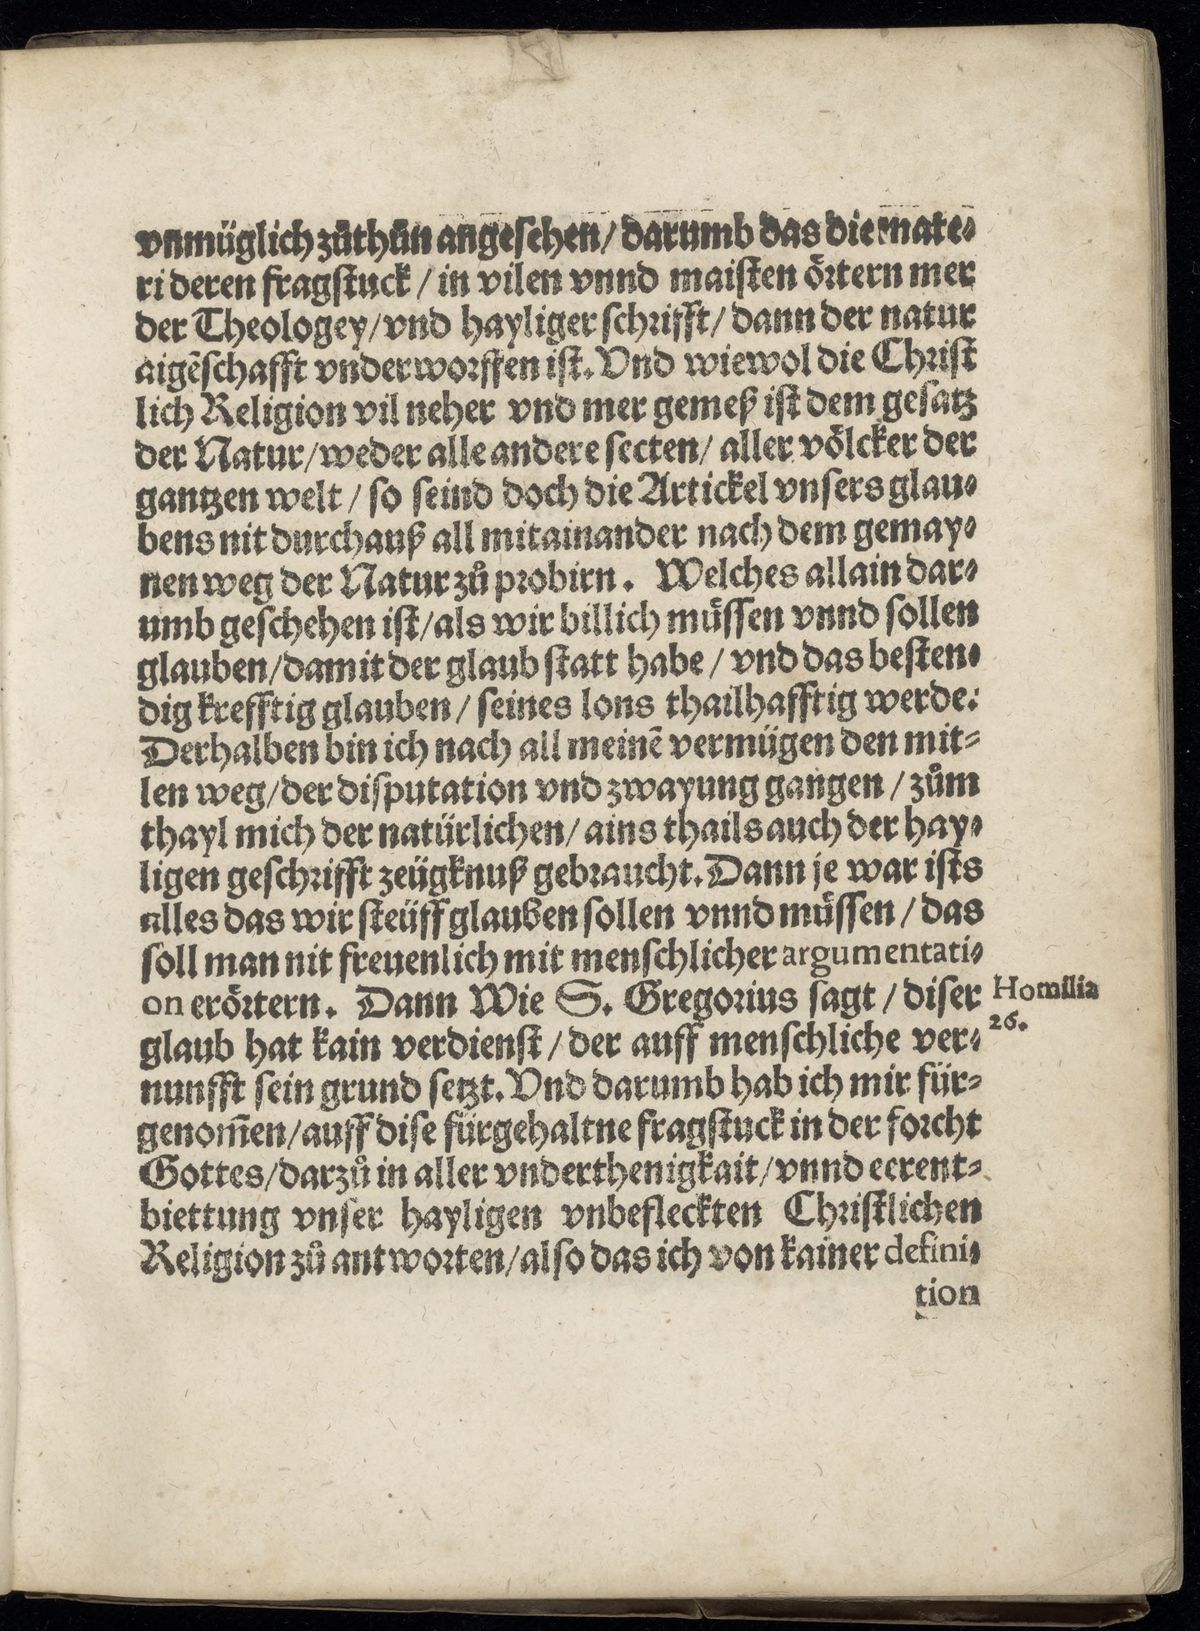 vnmüglich zůthůn angesehen / darumb das die mate-
ri deren fragstuck / in vilen vnnd maisten örtern mer
der Theologey / vnd hayliger schrifft / dann der natur
aigēschafft vnderworffen ist. Vnd wiewol die Christ
lich Religion vil neher vnd mer gemeß ist dem gesatz
der Natur / weder alle andere secten / aller völcker der
gantzen welt / so seind doch die Artickel vnsers glau-
bens nit durchauß all mitainander nach dem gemay-
nen weg der Natur zů probirn. Welches allain dar-
umb geschehen ist / als wir billich müssen vnnd sollen
glauben / damit der glaub statt habe / vnd das besten-
dig krefftig glauben / seines lons thailhafftig werde:
Derhalben bin ich nach all meinē vermügen den mit-
len weg / der disputation vnd zwayung gangen / zům
thayl mich der natürlichen / ains thails auch der hay-
ligen geschrifft zeügknuß gebraucht. Dann je war ists
alles das wir steüff glauben sollen vnnd müssen / das
soll man nit freuenlich mit menschlicher argumentati-
on erörtern. Dann Wie S. Gregorius sagt / diser
Homilia
26.
glaub hat kain verdienst / der auff menschliche ver-
nunfft sein grund setzt. Vnd darumb hab ich mir für-
genom̄en / auff dise fürgehaltne fragstuck in der forcht
Gottes / darzů in aller vnderthenigkait / vnnd eerent-
biettung vnser hayligen vnbefleckten Christlichen
Religion zů antworten / also das ich von kainer defini-
tion